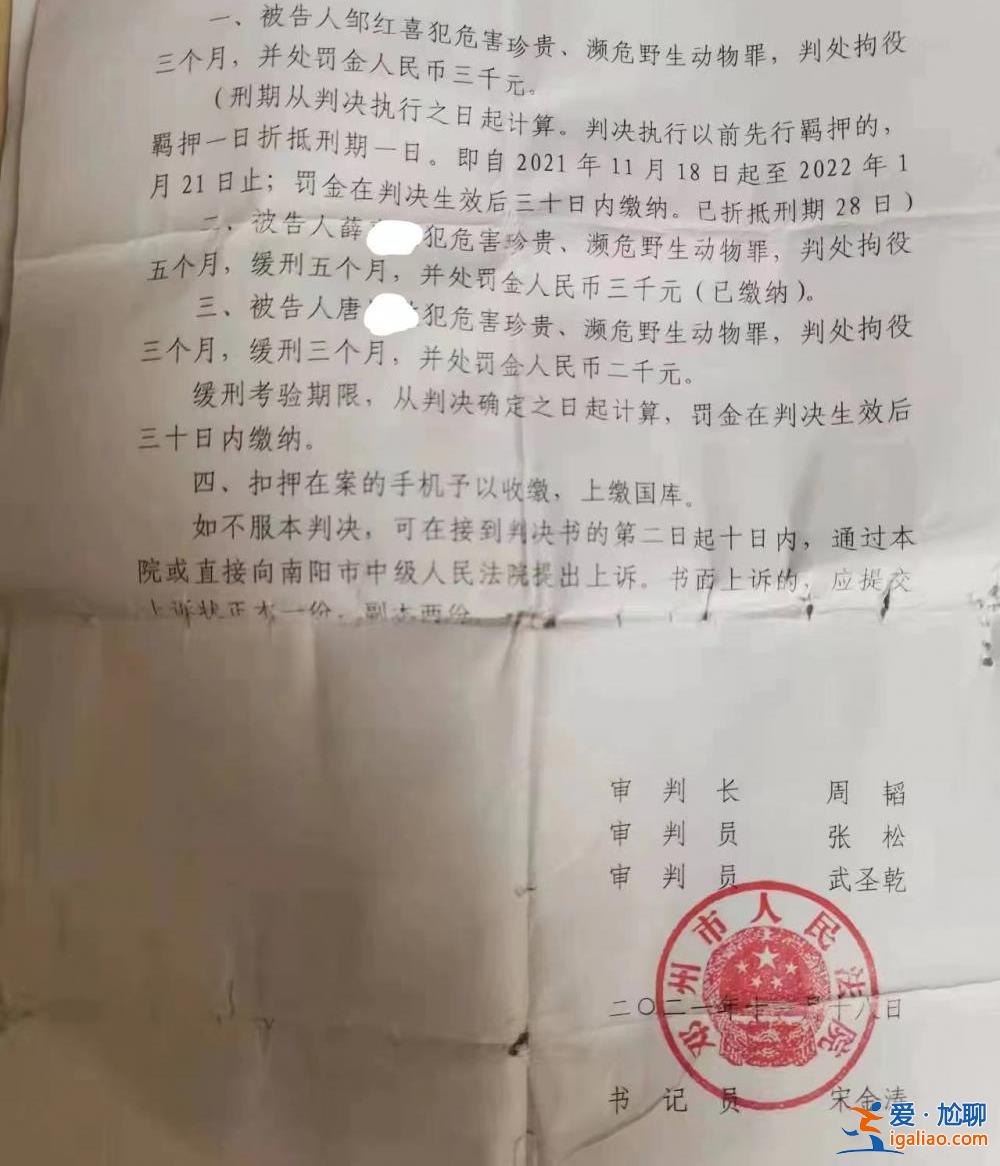 一、被告人邹红喜犯危害珍贵、濒危野生动物罪，判处拘役
三个月，并处罚金人民币三千元。
（刑期从判决执行之日起计算。判决执行以前先行羁押的，
羁押一日折抵刑期一日。即自2021年11月18日起至2022年1
月21日止；罚金在判决生效后三十日内缴纳。已折抵刑期28日）
二、被告人薛 犯危害珍贵、濒危野生动物罪，判处拘役
五个月，缓刑五个月，并处罚金人民币三千元（已缴纳）。
三、被告人唐 犯危害珍贵、濒危野生动物罪，判处拘役
三个月，缓刑三个月，并处罚金人民币二千元。
缓刑考验期限，从判决确定之日起计算，罚金在判决生效后
三十日内缴纳。
四、扣押在案的手机予以收缴，上缴国库。
如不服本判决，可在接到判决书的第二日起十日内，通过本
院或直接向南阳市中级人民法院提出上诉。书面上诉的，应提交
上诉状正本一份，副本两份
审判长 周韬
审判员 张松
审判员 武圣乾
邓州市人民法院
二〇二一年十 月十八日
书记员 宋金涛
爱·尬聊
igaliao.com